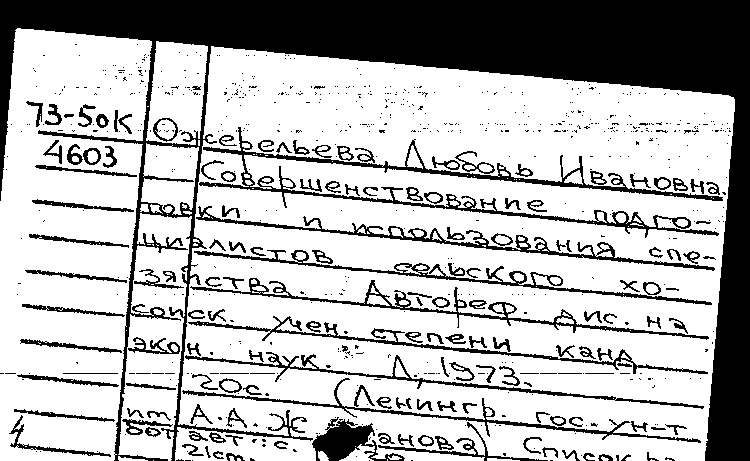 73-50к
4603
Ожерельева, Любовь Ивановна.
Совершенствование подго-
товки и использования спе-
циалистов сельского хо-
зяйства. Автореф. дис. на
соиск. учен. степени канд
экон. наук. Л., 1973.
20с. (Ленингр. гос. ун-т
им. А.А. Ж анова). Список
бот авт.: с.
4
21 ст.